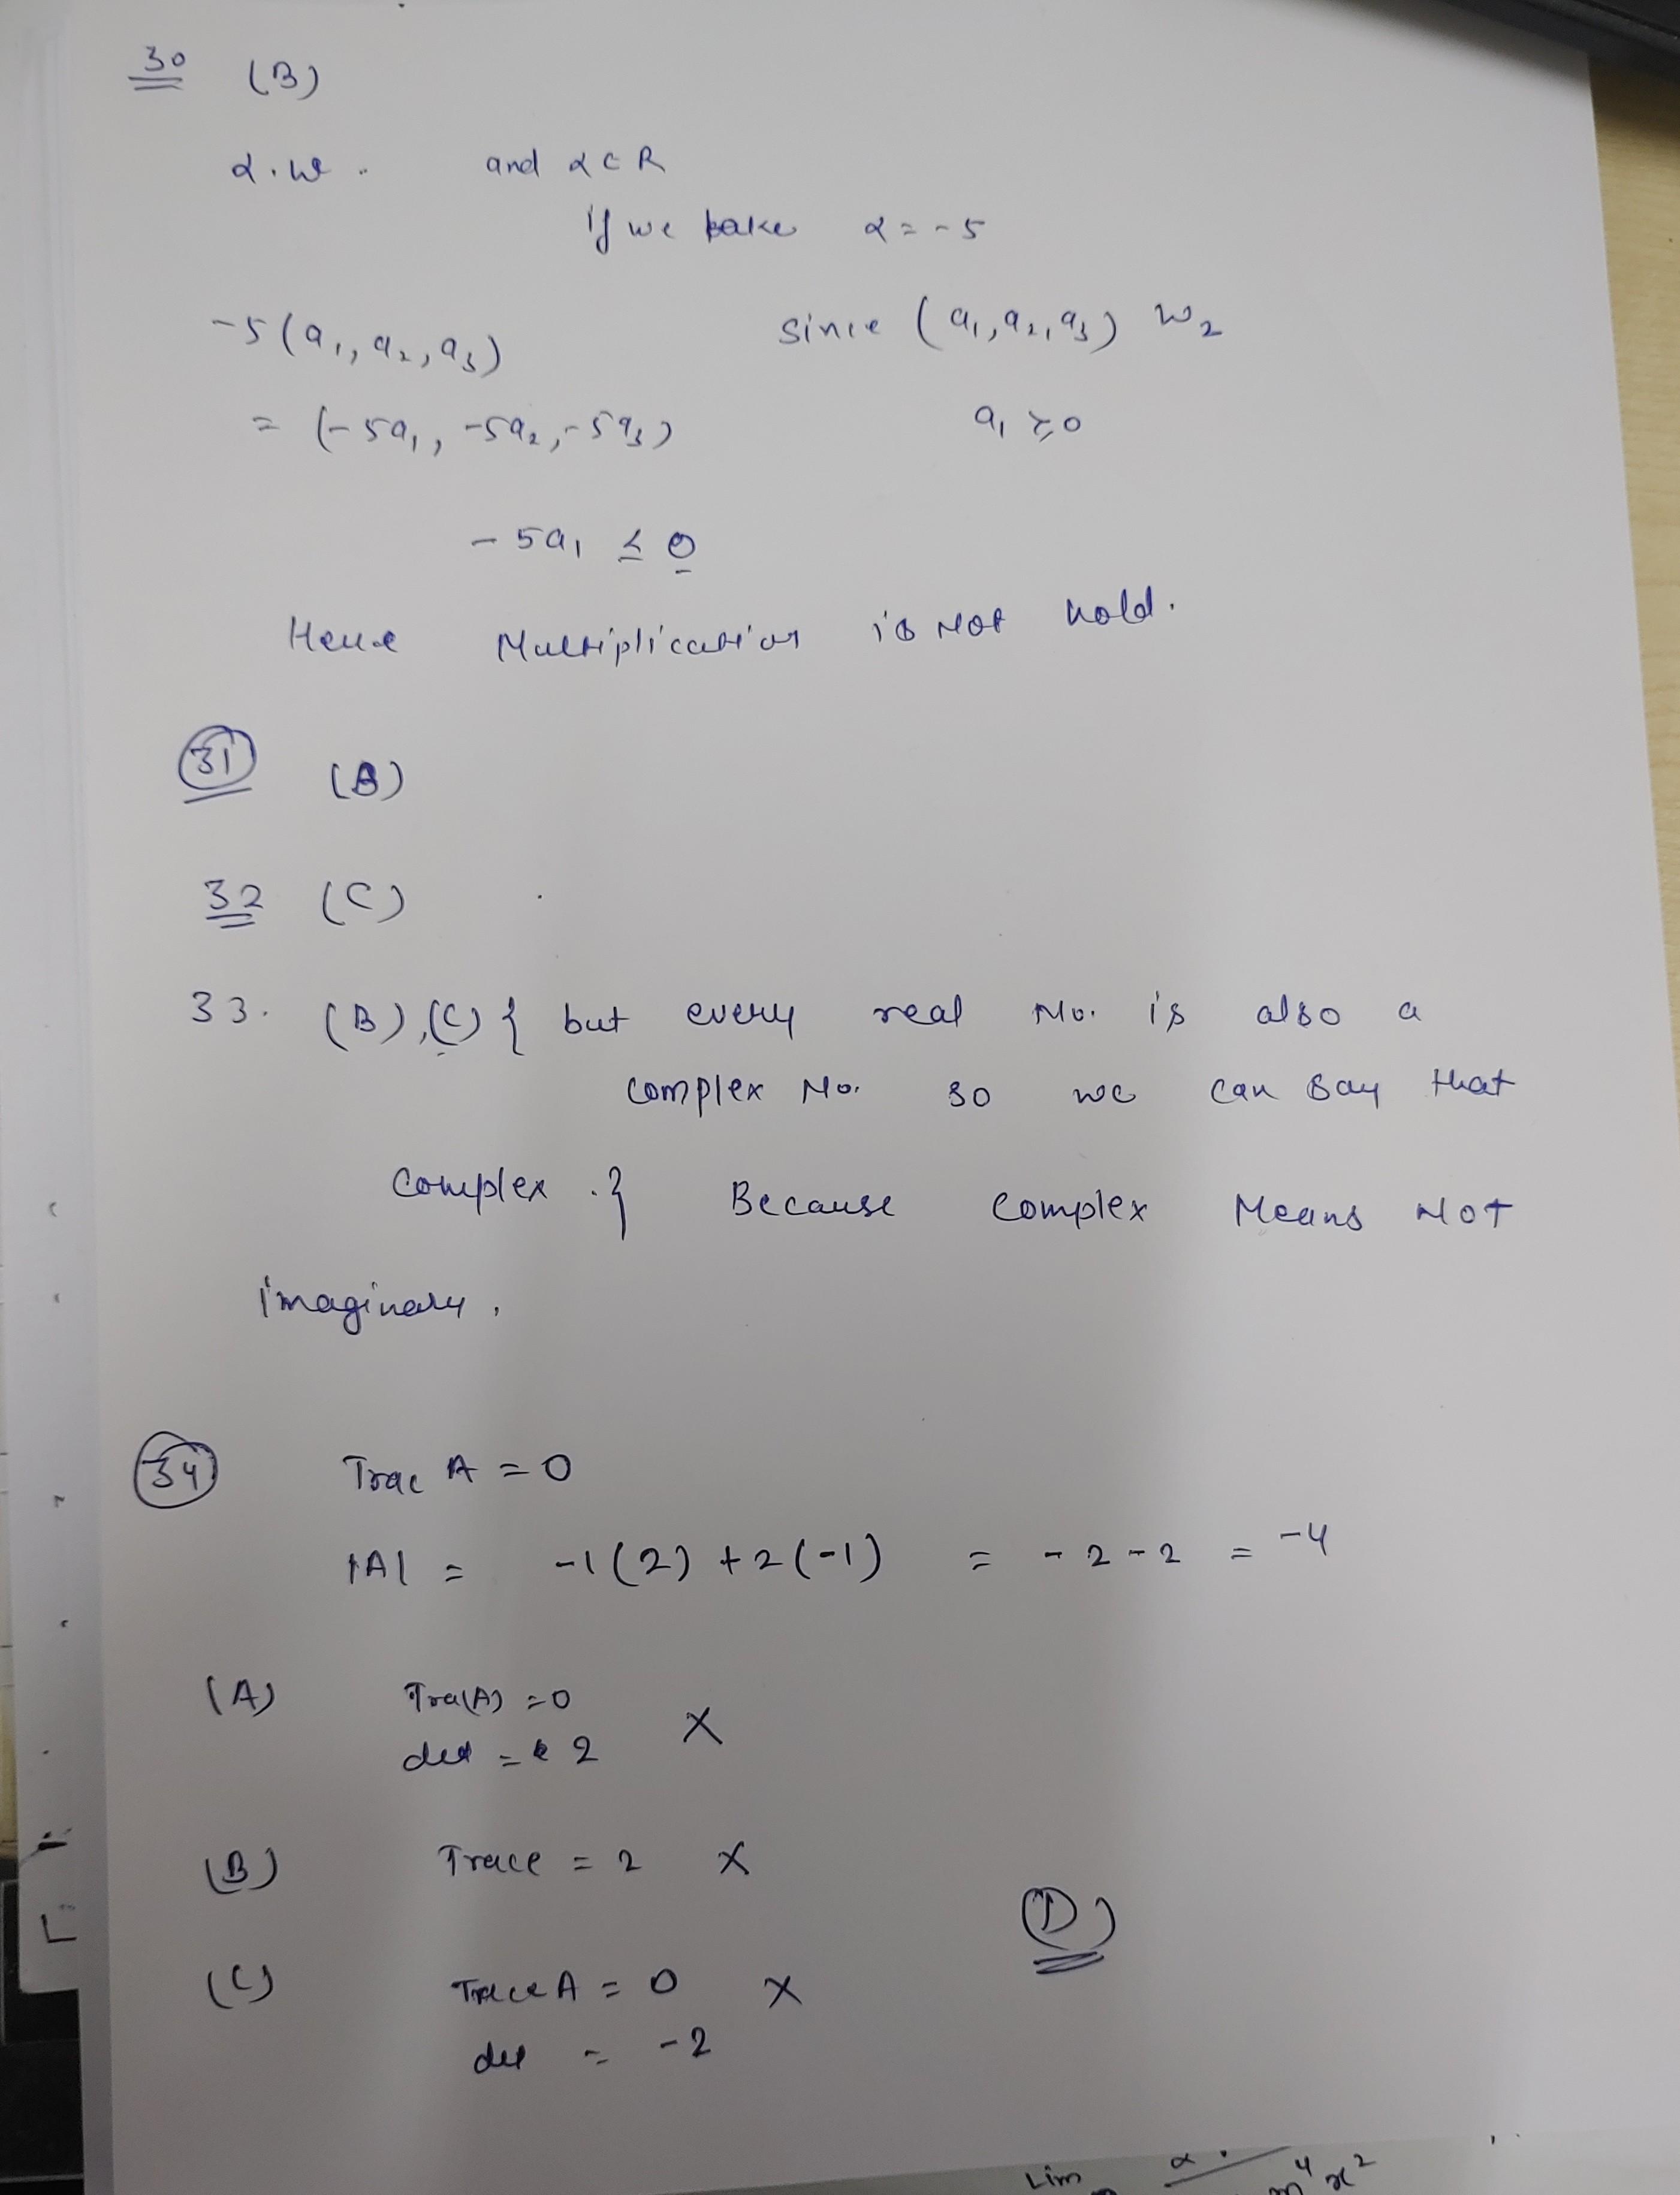 30 (B)
α.w.. and α ⊂ R
if we take α = -5
-5(a₁, a₂, a₃) Since (a₁, a₂, a₃) w₂
= (-5a₁, -5a₂, -5a₃) a₁ ≥ 0
-5a₁ ≤ 0
Hence Multiplication is Not hold.
31 (B)
32 (C)
33. (B), (C) { but every real No. is also a
complex No. so we can say that
complex .} Because complex Means Not
imaginary,
34 Trac A = 0
|A| = -1(2) + 2(-1) = -2-2 = -4
(A) Tra(A) = 0
det = 2 X
(B) Trace = 2 X
(D)
(C) Trace A = 0 X
det = -2
Lim α
m⁴ x²